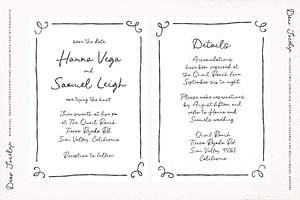 save the date
Hanna Vega
and
Samuel Leigh
are tying the knot
June seventh at five pm
at The Quail Ranch
Tierra Rejada Rd.
Simi Valley, California
Reception to follow
Details
Accomodations
have been reserved at
the Quail Ranch from
September six to eight
Please make reservations
by August fifteen and
refer to Hanna and
Samuels wedding.
Quail Ranch
Tierra Rejada Rd.
Simi Valley, 93065
California
Dear Joselyn
Dear Joselyn